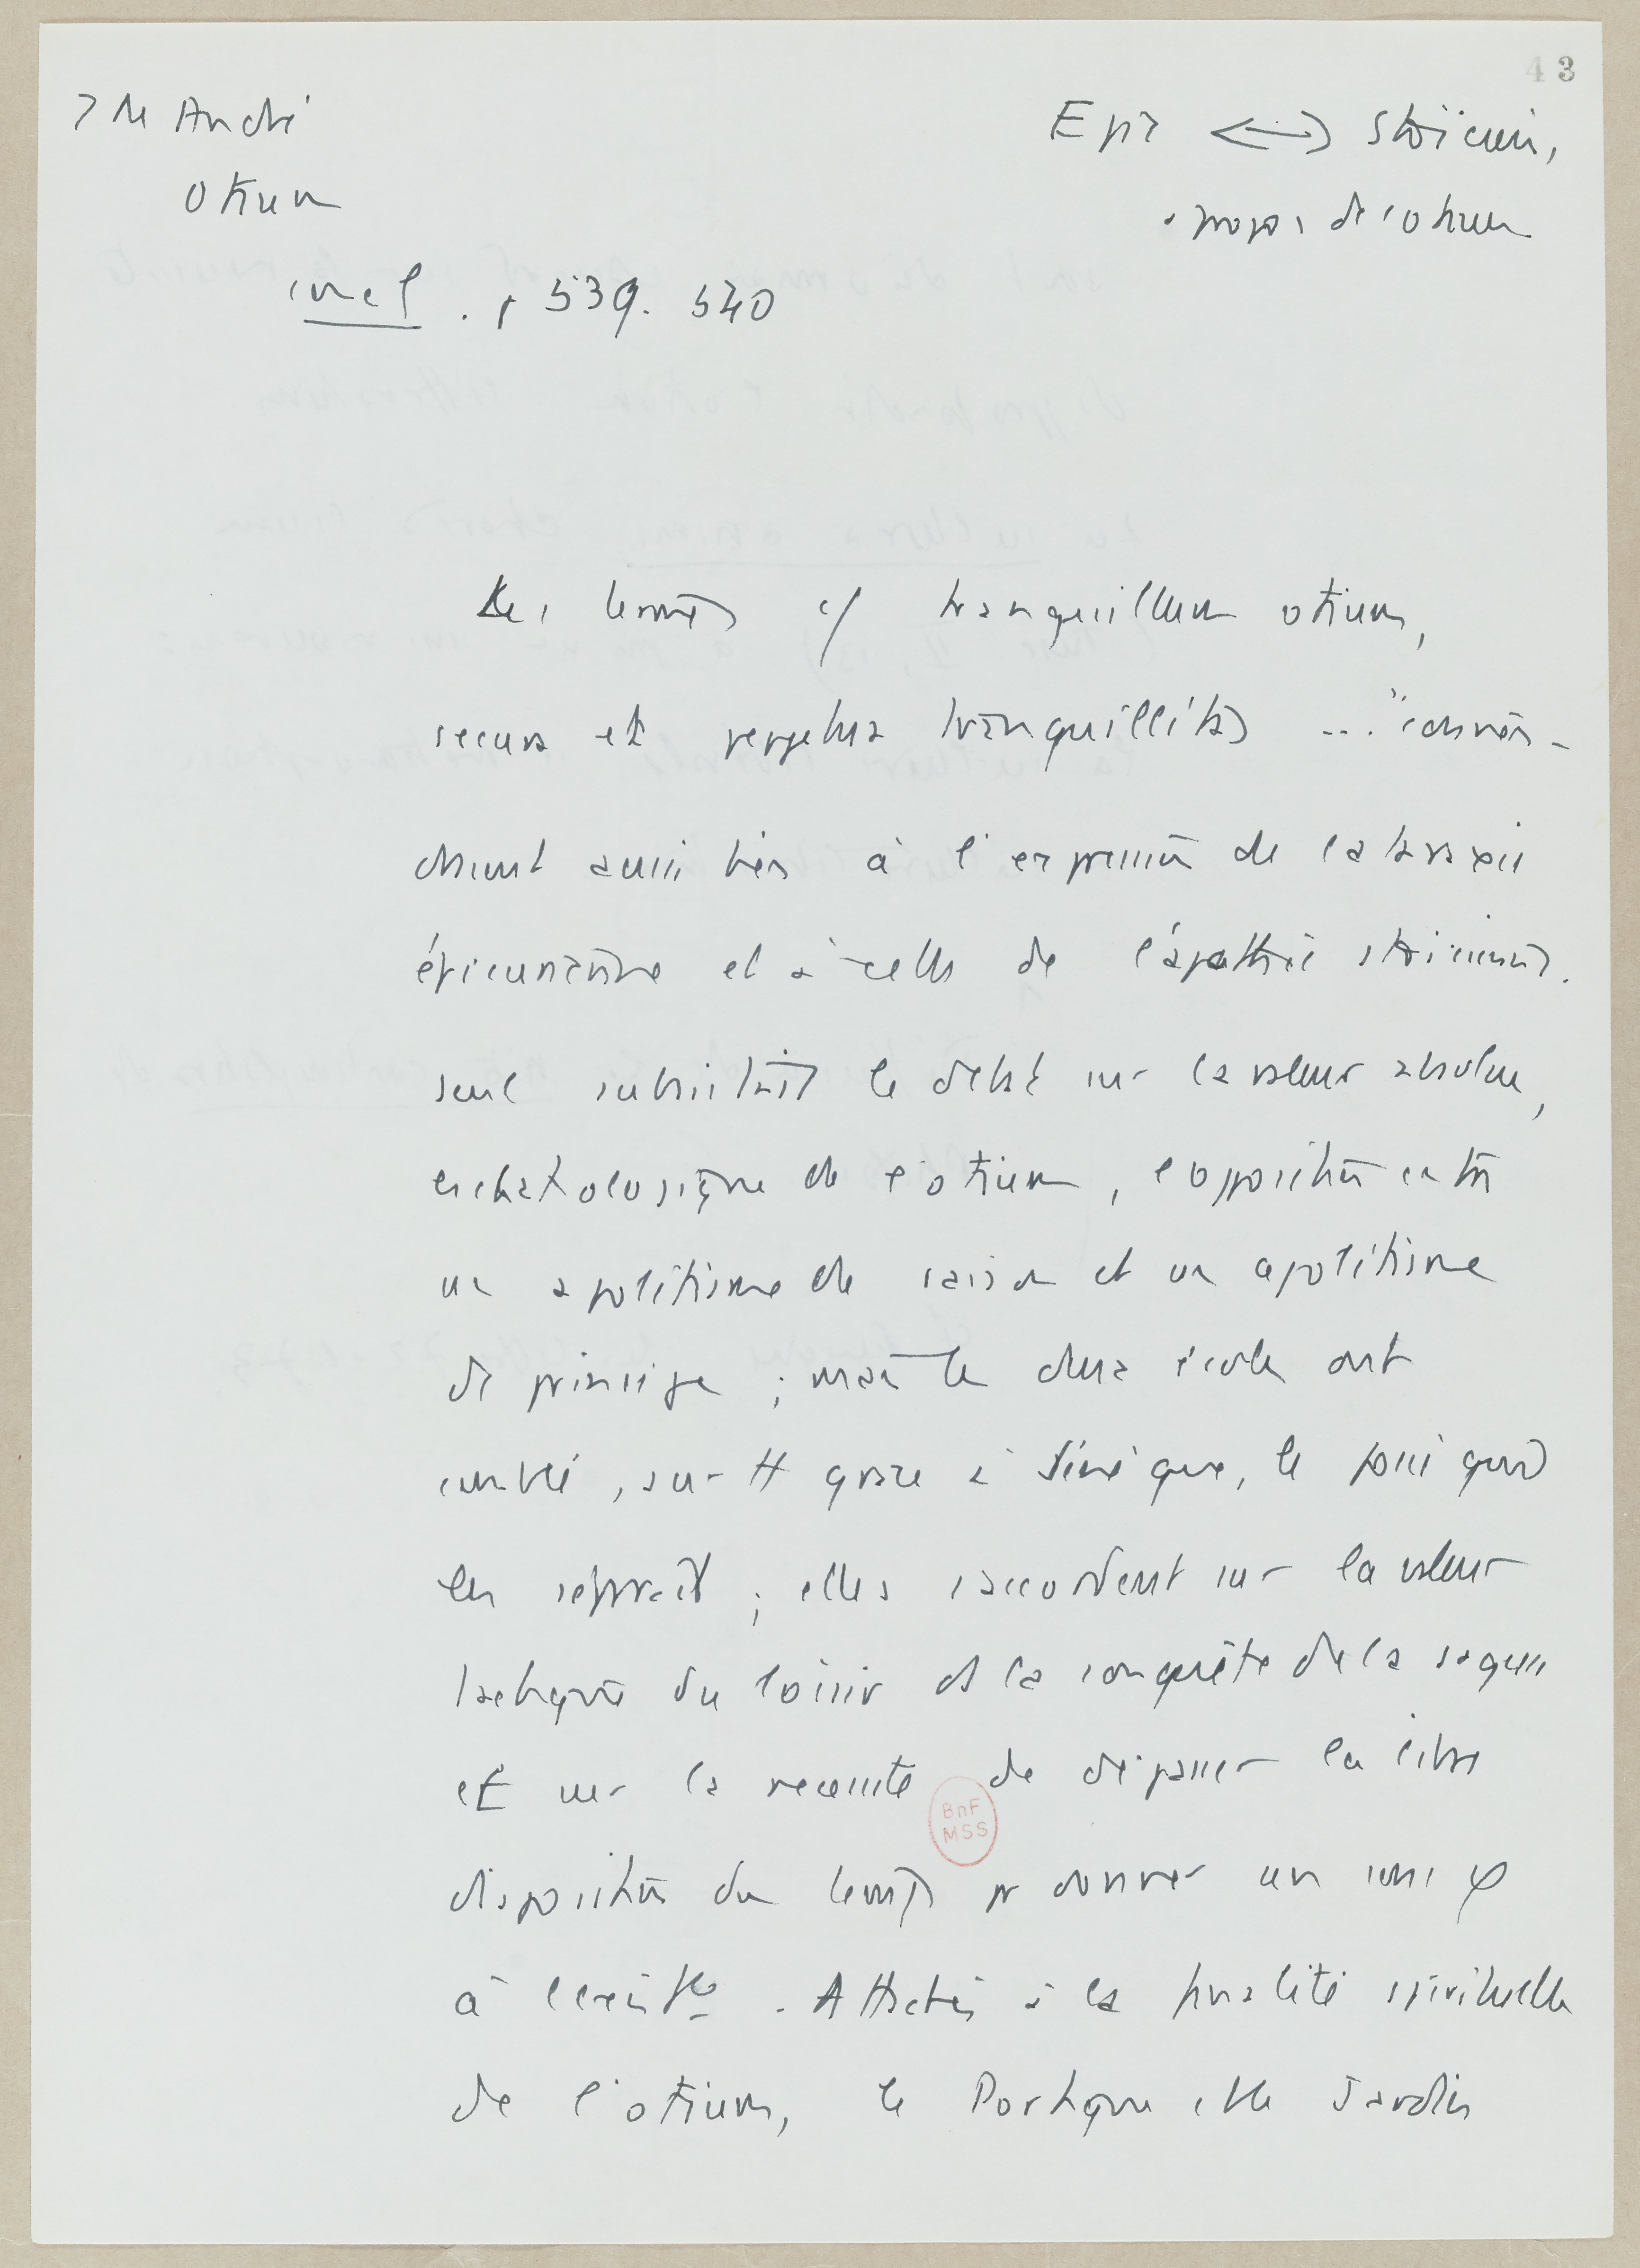 43
J M André
Otium
concl. p 539. 540
Epic ⟷ Stoïciens,
à propos de l'otium
Les termes cf tranquillum otium,
secura et perpetua tranquillitas ... "convien-
draient aussi bien à l'expression de l'ataraxie
épicurienne et à celle de l'apathie stoïcienne.
Seul subsistait le débat sur la valeur absolue,
eschatologique de l'otium, l'opposition entre
un apolitisme de raison et un apolitisme
de principe ; mais les deux écoles ont
comblé, surtt grâce à Sénèque, le fossé qui
les séparait ; elles s'accordent sur la valeur
tactique du loisir ds la conquête de la sagesse
et sur la nécessité de dépasser la libre
disposition du temps pr donner un sens φ
à l'existce. Attachés à la finalité spirituelle
de l'otium, le Portique et le Jardin
BnF
MSS